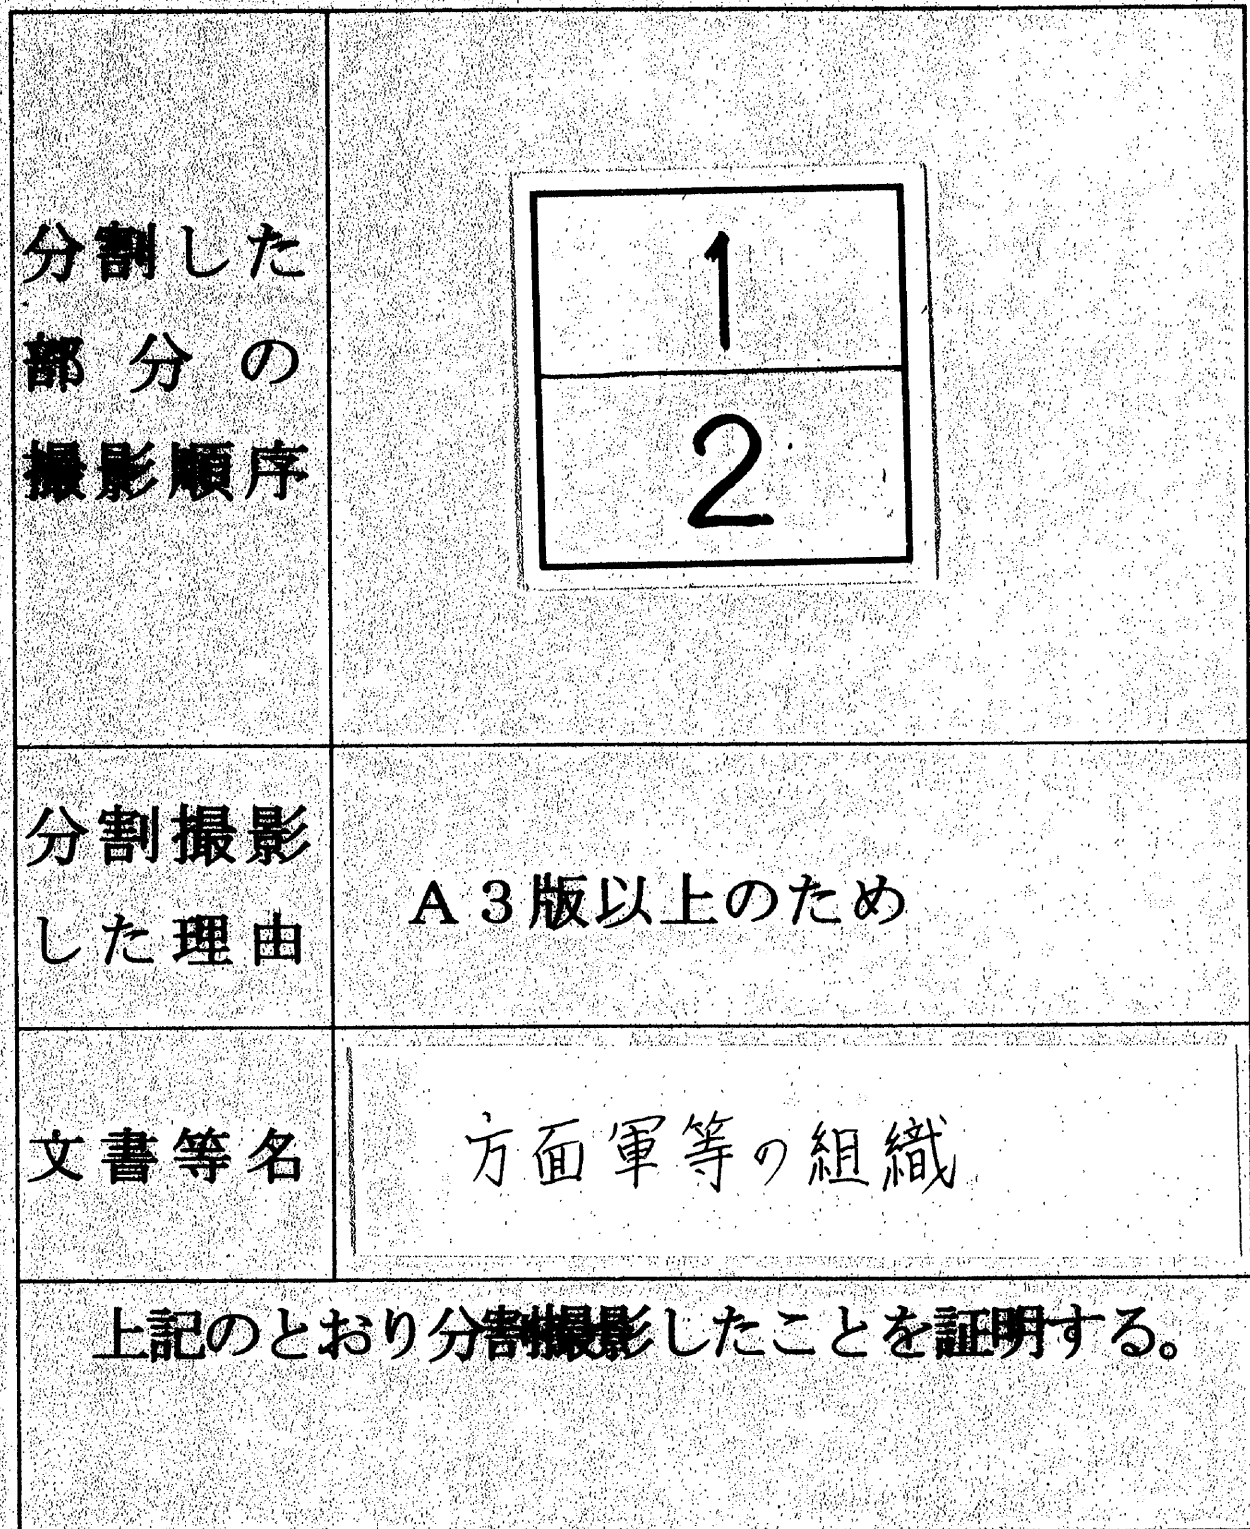 分割した
部分の
撮影順序
1
2
分割撮影
した理由
A3版以上のため
文書等名
方面軍等の組織
上記のとおり分割撮影したことを証明する。